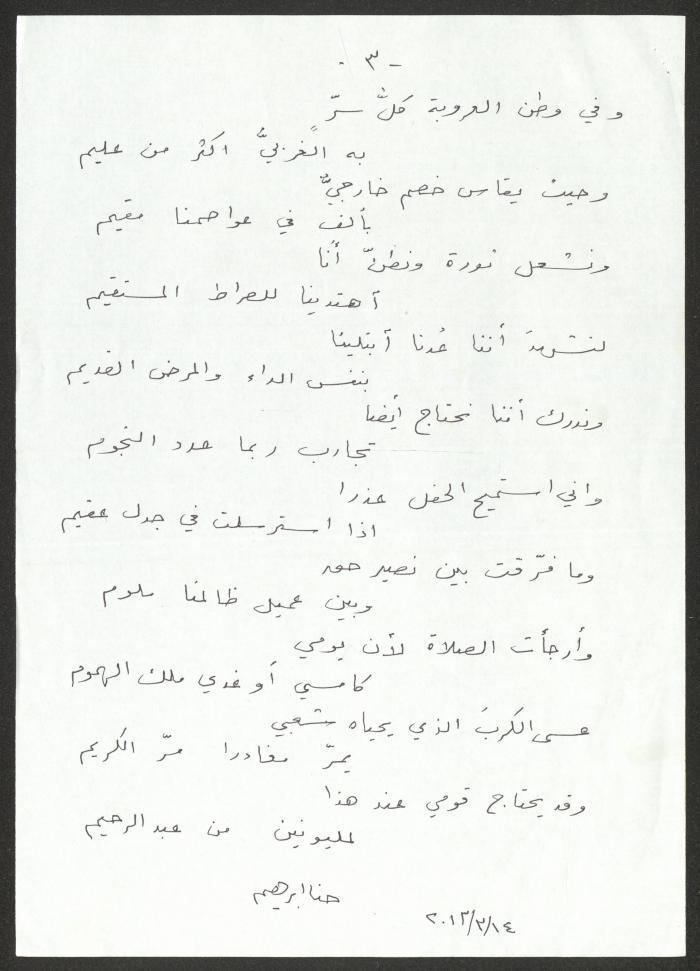 - ٣ -
وفي وطن العروبة كلُّ سرّ
به الغربيُّ اكثر من عليم
وحيث يقاس خصم خارجيٌّ
بألف في عواصمنا مقيم
ونشعل ثورة ونظنّ أنا
آهتدينا للصراط المستقيم
لنشهدَ أننا عُدنا آبتلينا
بنفس الداء والمرض القديم
وندرك أننا نحتاج أيضا
تجارب ربما عدد النجوم
واني استميح الحفل عذرا
اذا استرسلت في جدل عقيم
وما فرّقت بين نصير حق
وبين عميل ظالمنا ملوم
وأرجأت الصلاة لأن يومي
كامسي أو غدي ملك الهموم
عسى الكربَ الذي يحياه شعبي
يمرّ مغادرا مرّ الكريم
وقد يحتاج قومي عند هذا
لمليونين من عبد الرحيم
حنا ابرهيم
٢٠١٢/٣/١٤